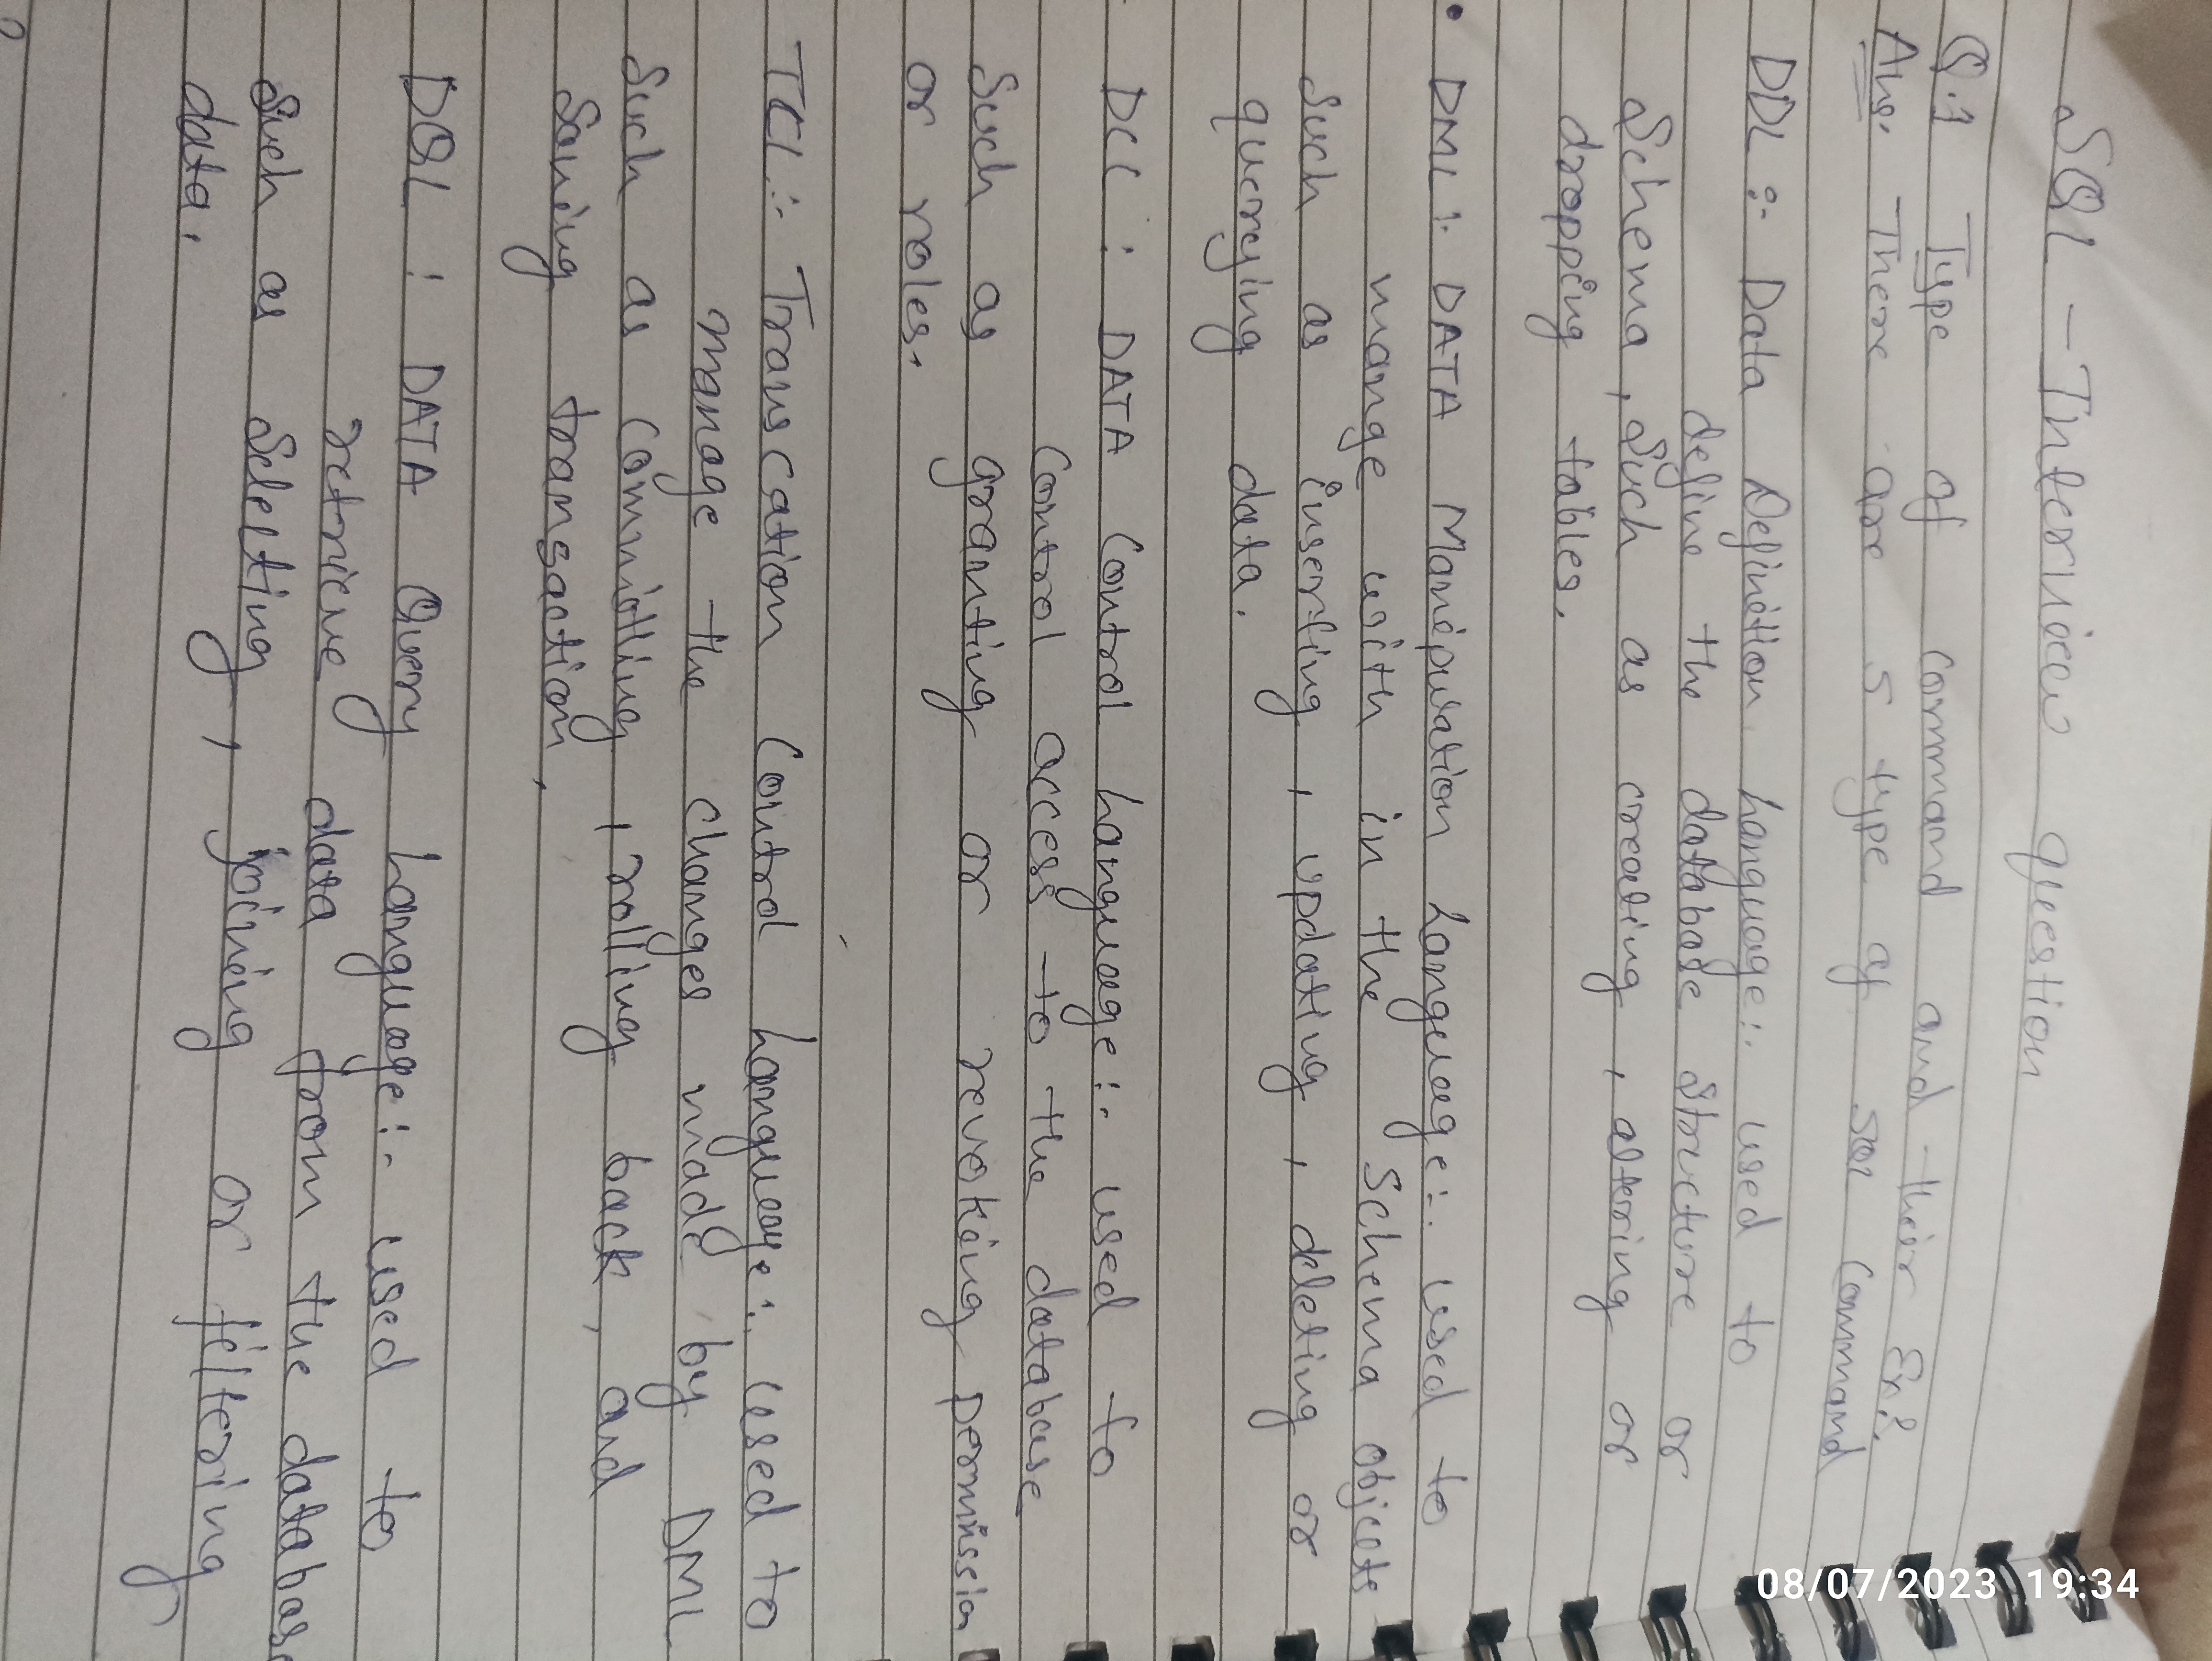 SQL - Interview question
Q.1 Type of command and their Ex?
Ans. There are 5 type of SQL Command
DDL :- Data Definition Language:- used to
define the database structure or
Schema, Such as creating, altering or
dropping tables.
• DML :- DATA Manipulation Language:- used to
mange with in the Schema objects
such as inserting, updating, deleting or
querying data.
- DCL : DATA Control Language:- used to
Control access to the database
Such as granting or revoking permission
or roles.
TCL :- Transcation Control Language:- used to
manage the changes made by DML
Such as committing, rolling back, and
Saving transaction,
DQL : DATA Query Language:- used to
retrieve data from the database
Such as Selecting, joining or filtering
data.
08/07/2023 19:34